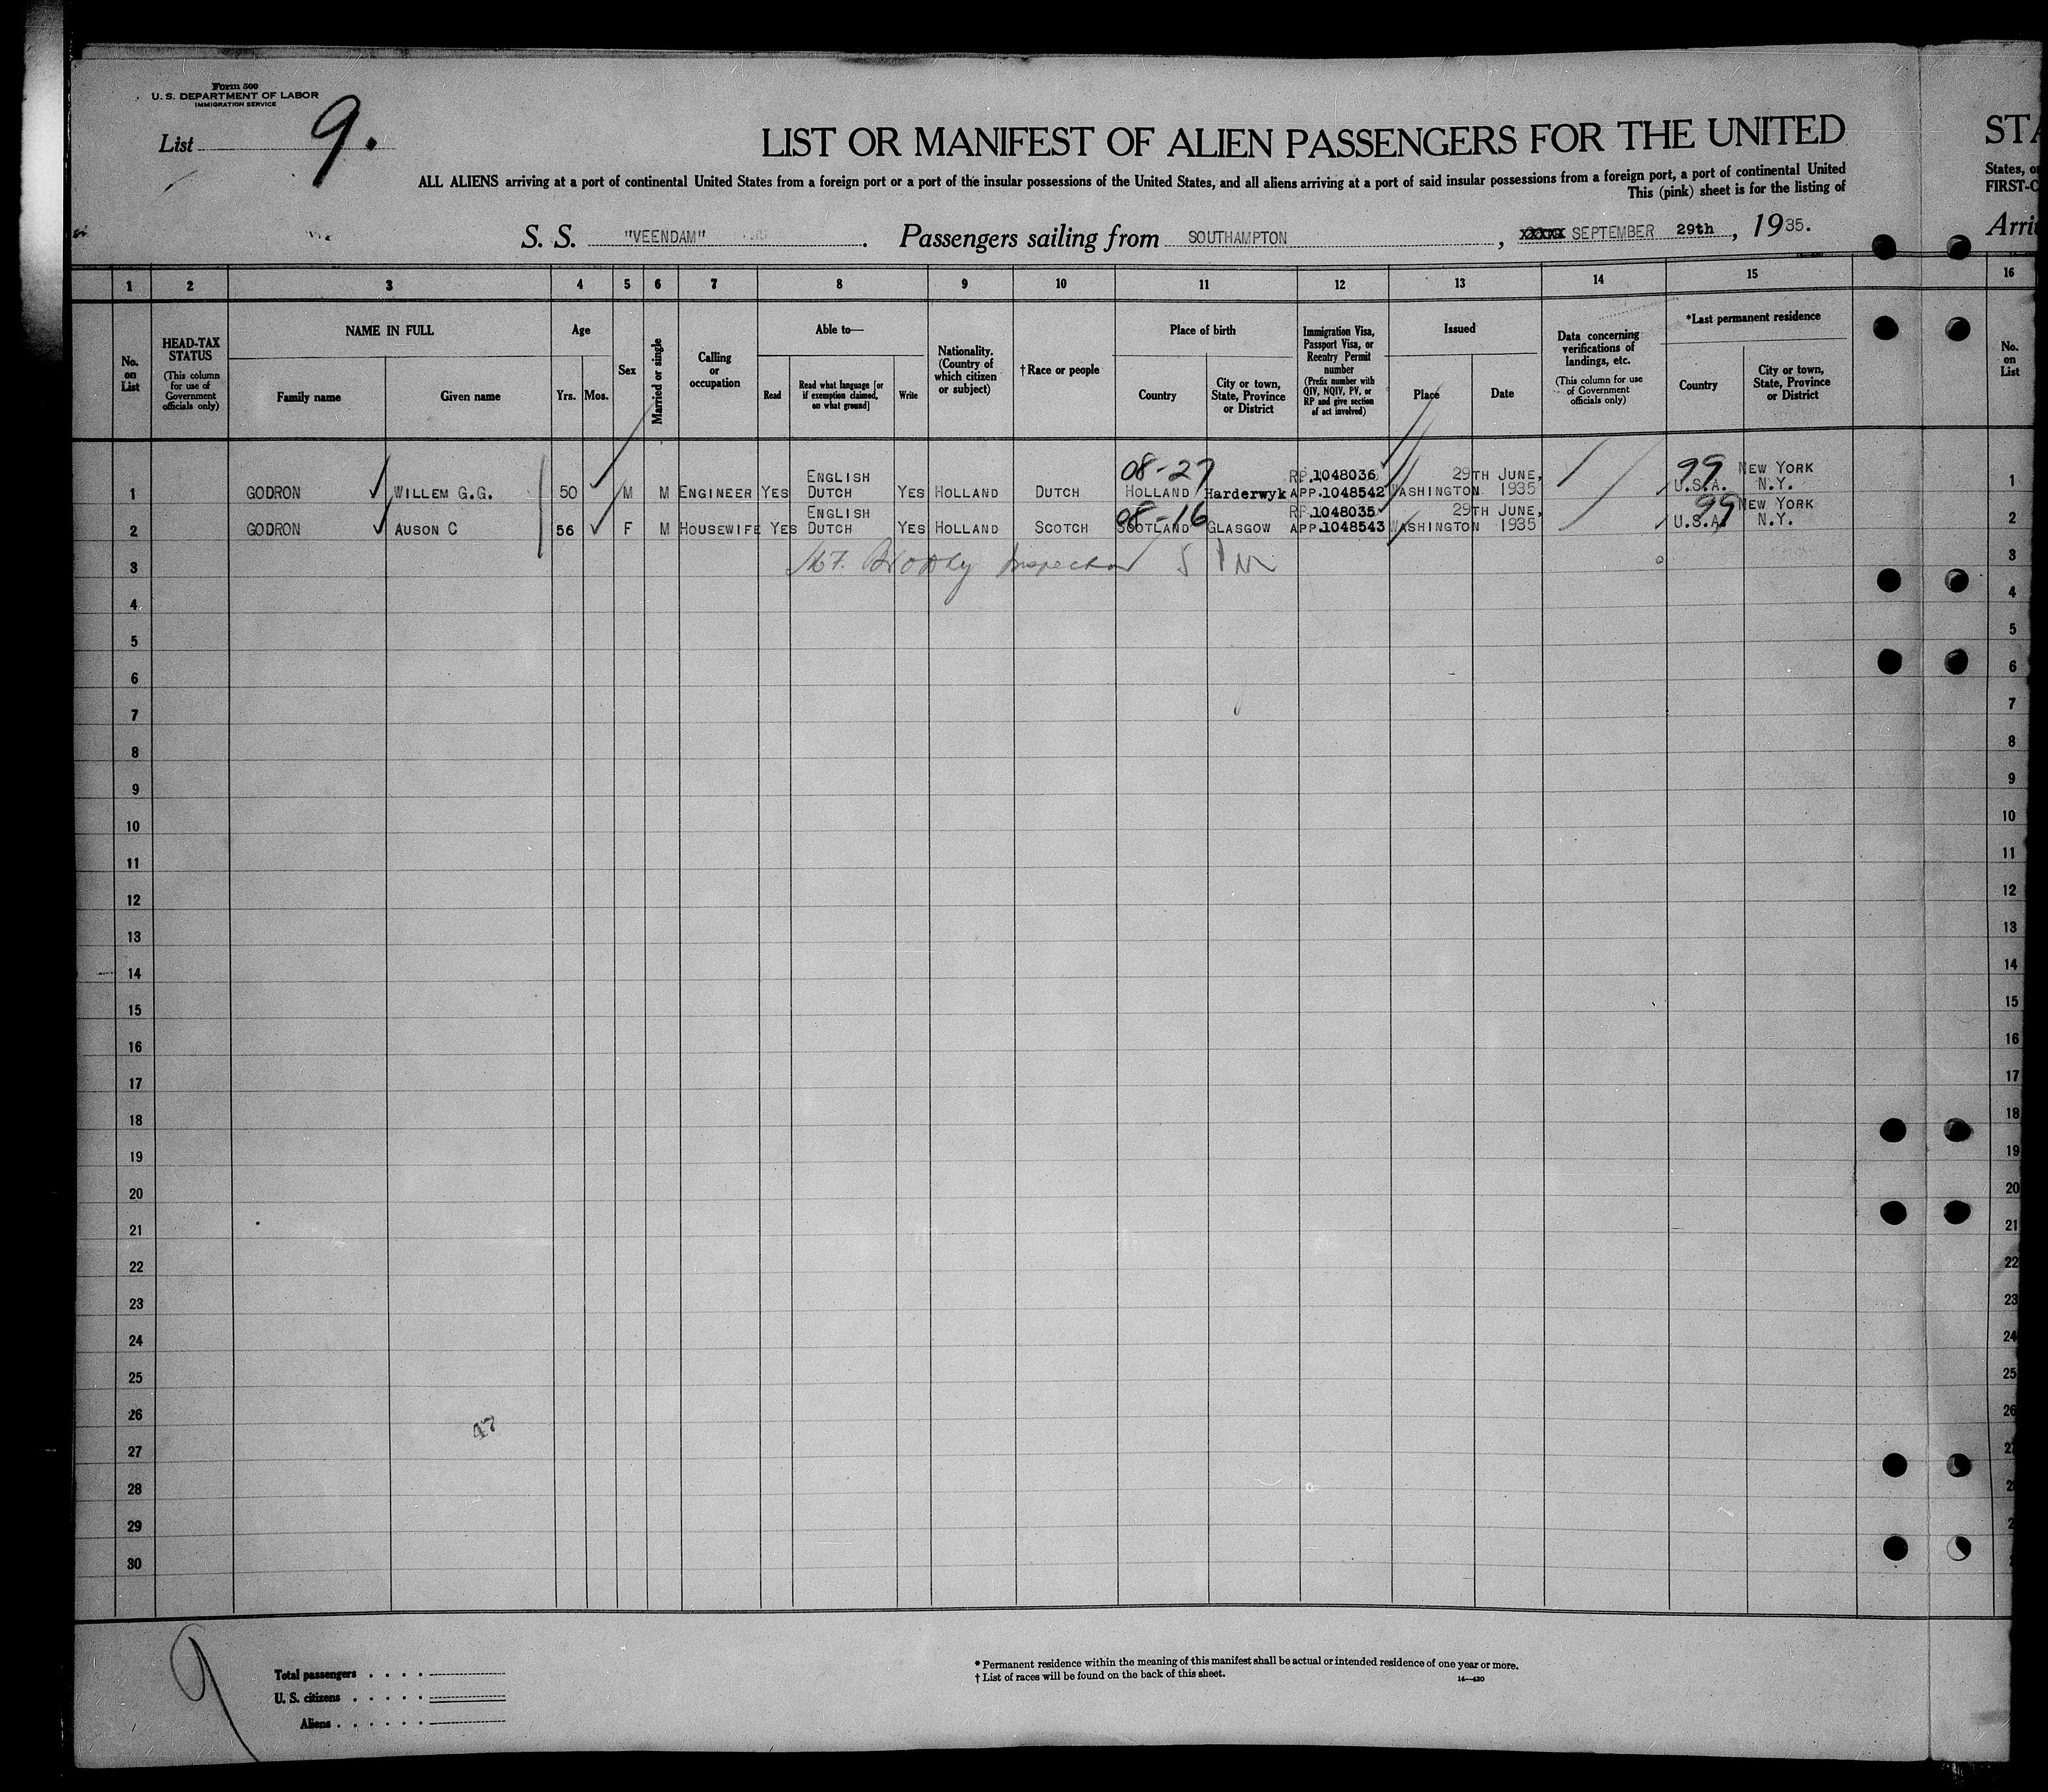 Form 500
U. S. DEPARTMENT OF LABOR
IMMIGRATION SERVICE
List 9.
LIST OR MANIFEST OF ALIEN PASSENGERS FOR THE UNITED STA
ALL ALIENS arriving at a port of continental United States from a foreign port or a port of the insular possessions of the United States, and all aliens arriving at a port of said insular possessions from a foreign port, a port of continental United States, o
This (pink) sheet is for the listing of FIRST-C
S. S. "VEENDAM". Passengers sailing from SOUTHAMPTON, XXXXX SEPTEMBER 29th, 1935. Arri
1 2 3 4 5 6 7 8 9 10 11 12 13 14 15 16
No. on List
HEAD-TAX STATUS (This column for use of Government officials only)
NAME IN FULL
Family name
Given name
Age
Yrs. Mos.
Sex
Married or single
Calling or occupation
Able to—
Read
Read what language [or if exemption claimed, on what ground]
Write
Nationality. (Country of which citizen or subject)
†Race or people
Place of birth
Country
City or town, State, Province or District
Immigration Visa, Passport Visa, or Reentry Permit number (Prefix number with QIV, NQIV, PV, or RP and give section of act involved)
Issued
Place
Date
Data concerning verifications of landings, etc. (This column for use of Government officials only)
*Last permanent residence
Country
City or town, State, Province or District
No. on List
ENGLISH 08-27 RP.1048036 29TH JUNE, 99 NEW YORK
1 GODRON WILLEM G.G. 50 M M ENGINEER YES DUTCH YES HOLLAND DUTCH HOLLAND Harderwyk APP.1048542 WASHINGTON 1935 U.S.A. N.Y. 1
ENGLISH 08-16 RP.1048035 29TH JUNE, 99 NEW YORK
2 GODRON AUSON C 56 F M HOUSEWIFE YES DUTCH YES HOLLAND SCOTCH SCOTLAND GLASGOW APP.1048543 WASHINGTON 1935 U.S.A. N.Y. 2
3 Inspector 3
4 4
5 5
6 6
7 7
8 8
9 9
10 10
11 11
12 12
13 13
14 14
15 15
16 16
17 17
18 18
19 19
20 20
21 21
22 22
23 23
24 24
25 25
26 26
27 2
28 2
29 2
30
9
Total passengers
U. S. citizens
Aliens
* Permanent residence within the meaning of this manifest shall be actual or intended residence of one year or more.
† List of races will be found on the back of this sheet.
14—430